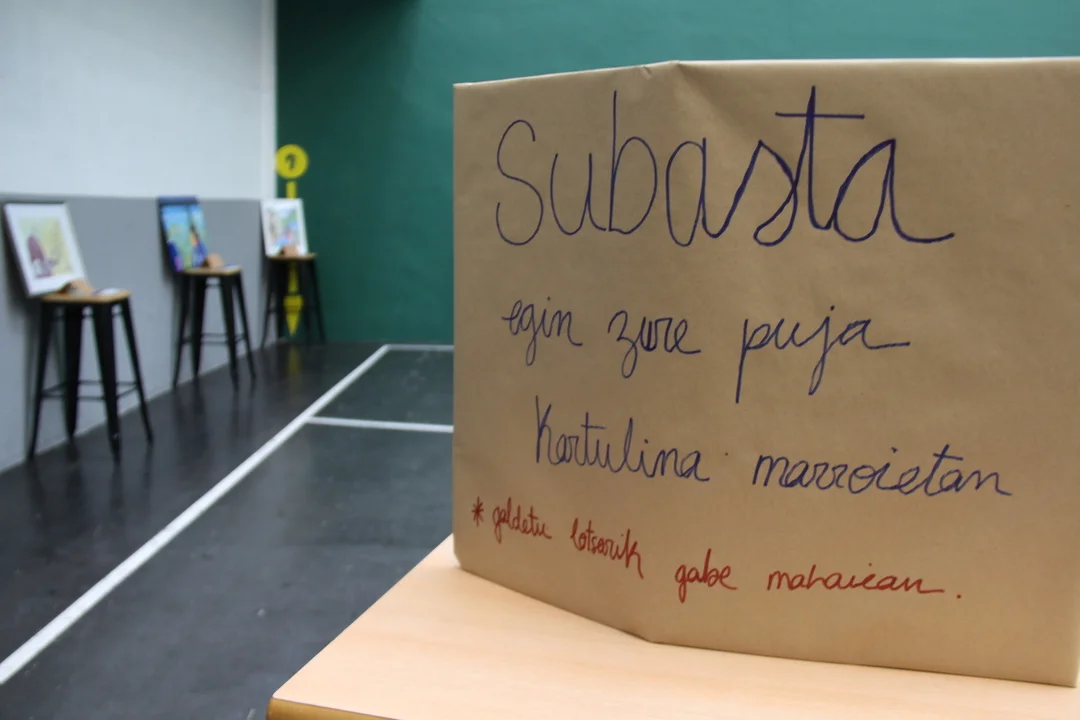 Subasta
egin zure puja
Kartulina marroietan
* galdetu lotsarik gabe mahaiean.